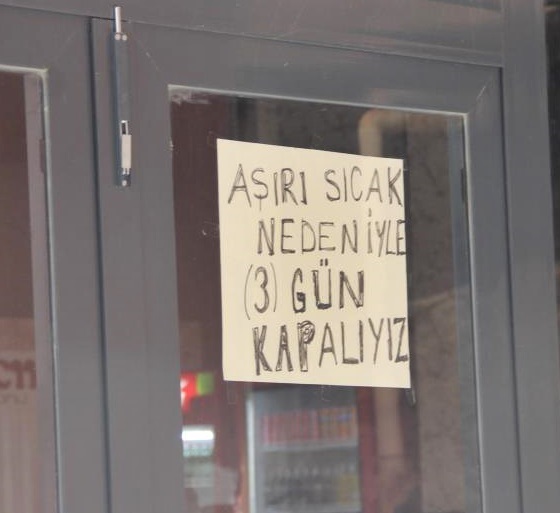 AŞIRI SICAK
NEDENİYLE
(3) GÜN
KAPALIYIZ